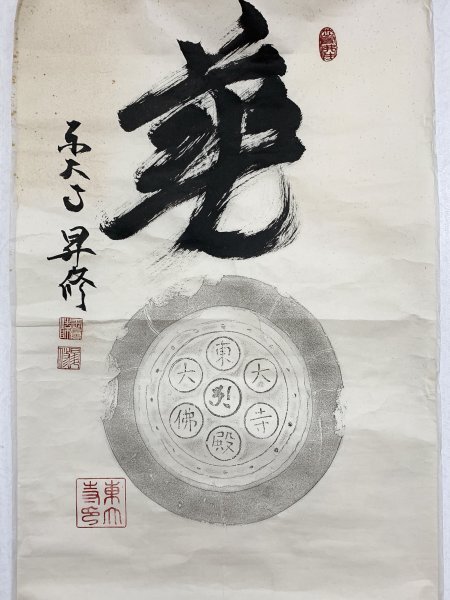 華
東大寺昇修
東大寺大佛殿
東大寺印